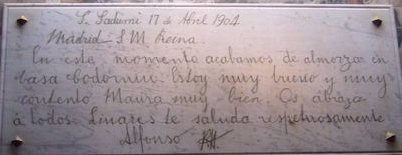 S. Sadurní 17 de Abril 1904
Madrid - S. M. Reina
En este momento acabamos de almorzar en
casa Codorniu. Estoy muy bueno y muy
contento Maura muy bien. Os abraza
á todos. Linares te saluda respetuosamente
Alfonso